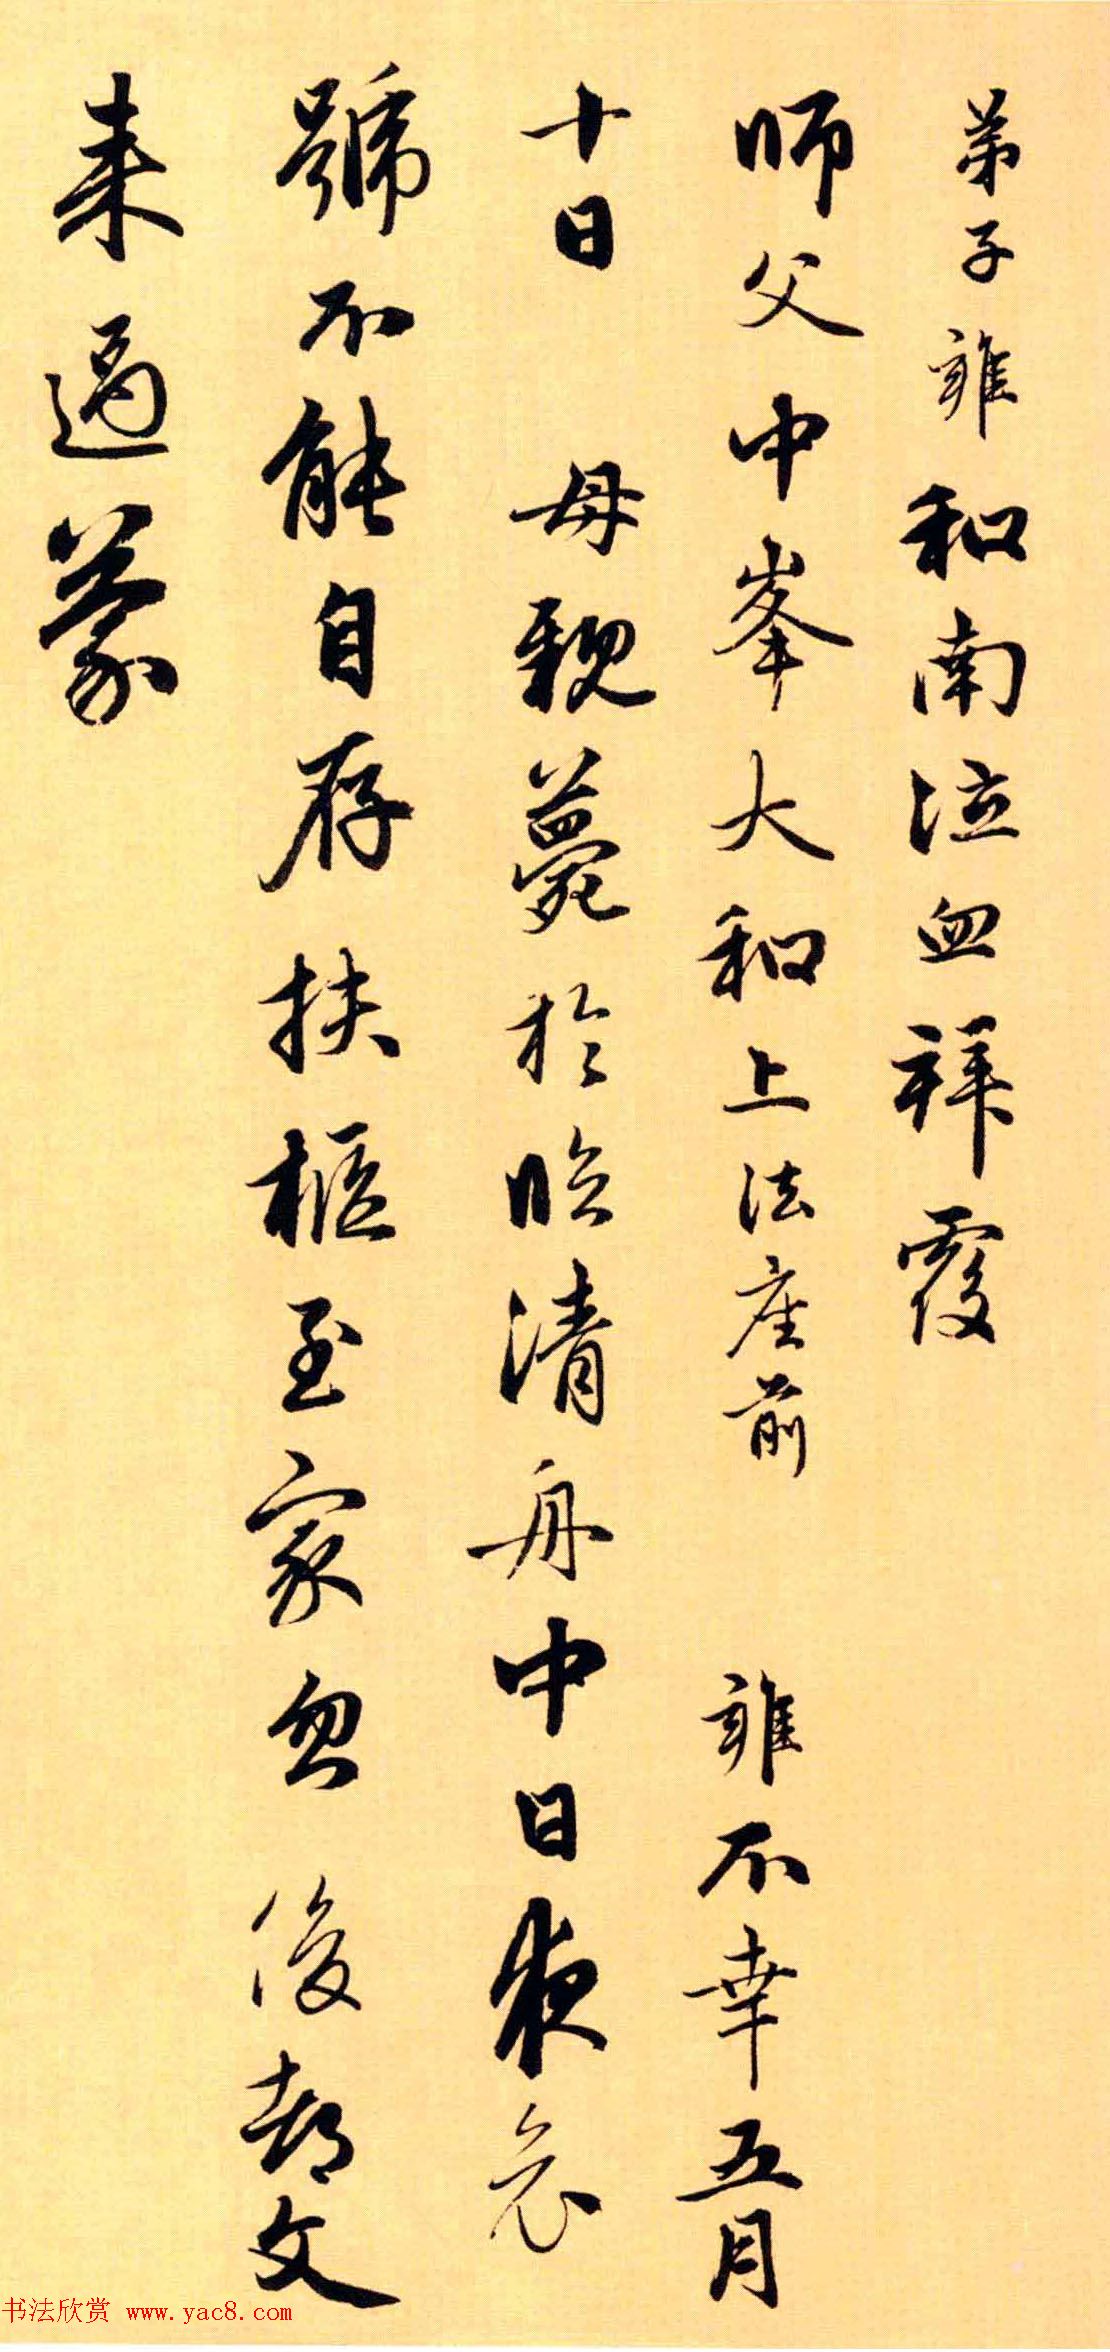 弟子雍和南泣血拜覆
師父中峯大和上法座前 雍不幸五月
十日 母親薨於臨清舟中日夜哀
號不能自存扶柩至家忽 後都文
來過蒙
书法欣赏 www.yac8.com